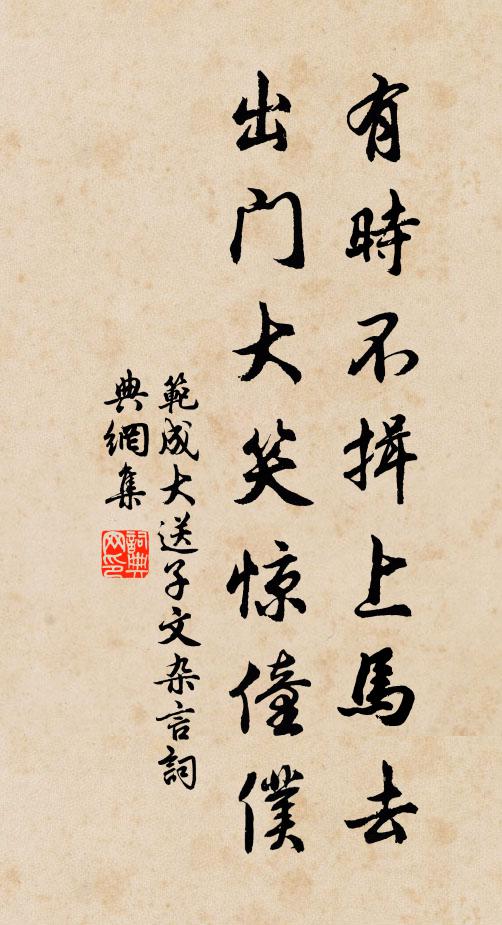 有時不揖上馬去
出门大笑惊僮僕
範成大送子文杂言詞
典網集
詞典
网印